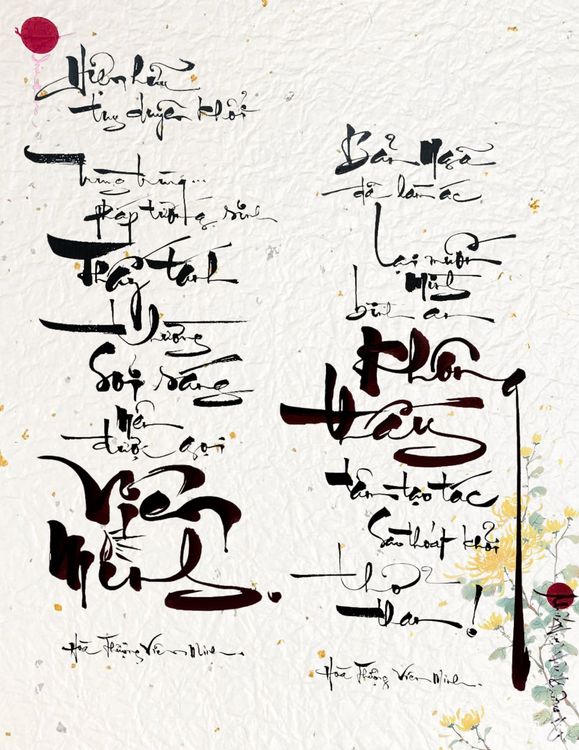 Hiện hữu
tuỳ duyên khởi
Trùng trùng...
pháp tướng sinh
Thấy tánh
thường
soi sáng
Nên
được gọi
Viên
Minh.
Hoà Thượng Viên Minh.
Bản Ngã
đã làm ác
Lại muốn
Mình
bình an
Không
thấy
tâm tạo tác
Sao thoát khỏi
thở
than!
Hoà Thượng Viên Minh.